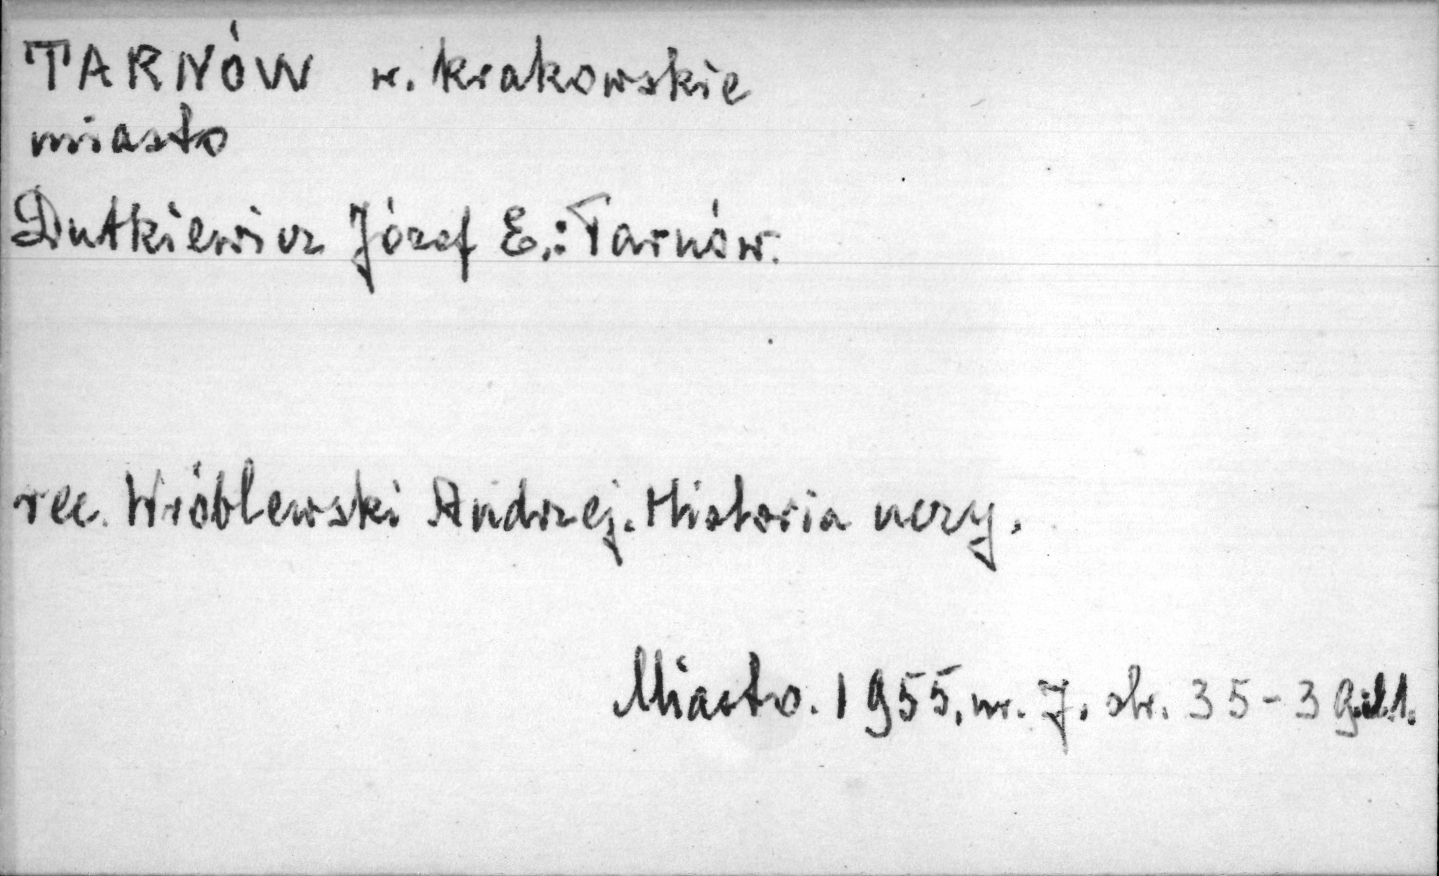 TARNÓW w. krakowskie
miasto
Dutkiewicz Józef E.: Tarnów.
rec. Wróblewski Andrzej. Historia uczy.
Miasto. 1955, nr. 7. str. 35-39, il.